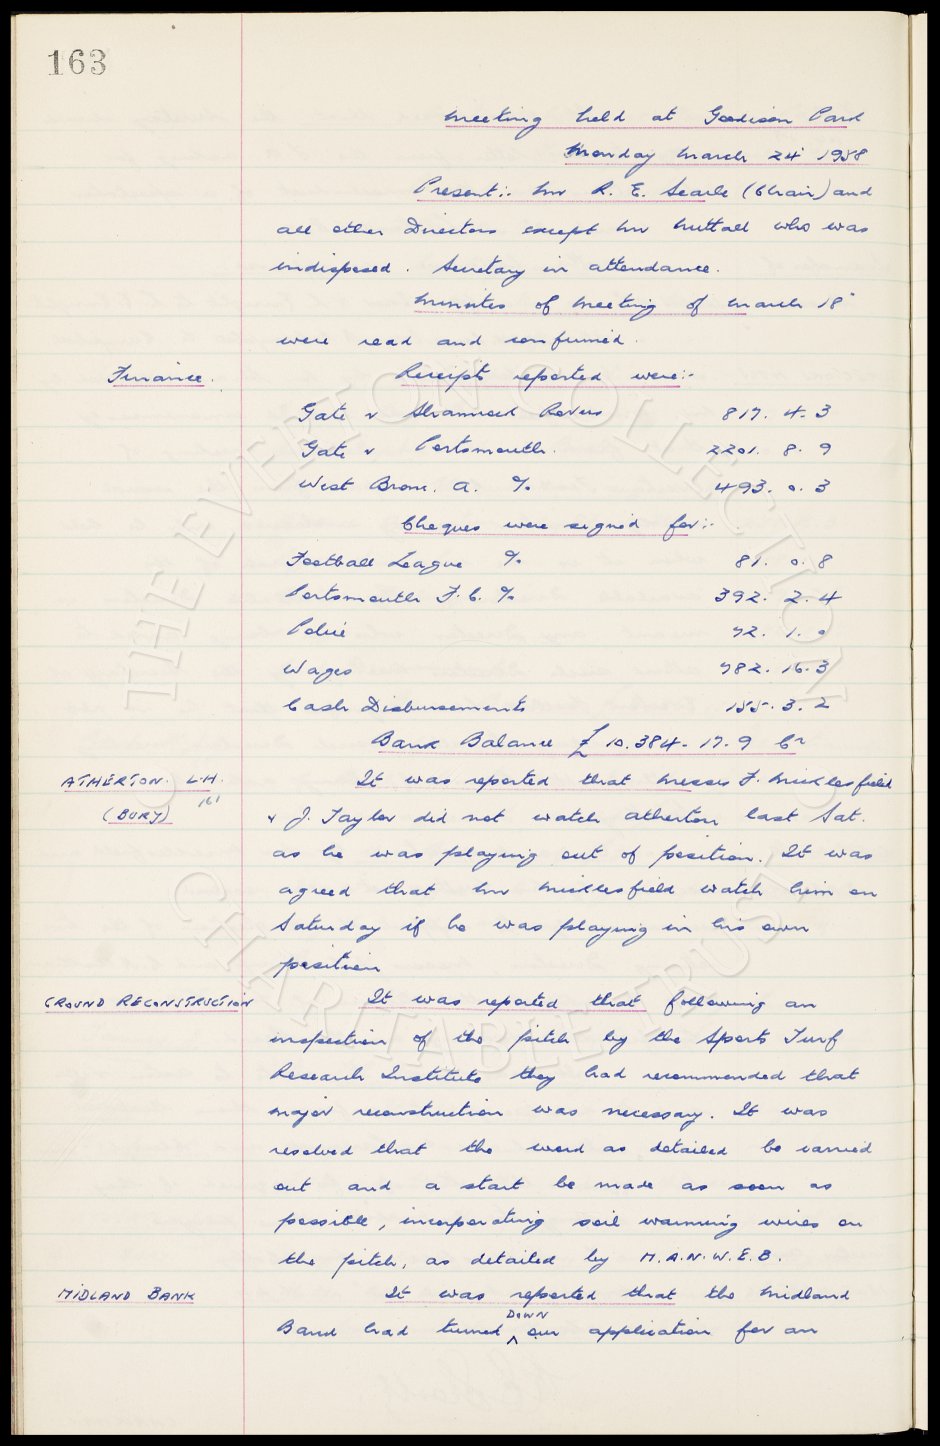 163
Meeting held at Goodison Park
Monday March 24" 1958
Present:- Mr R. E. Searle (Chair) and
all other Directors except Mr Nuttall who was
indisposed. Secretary in attendance.
Minutes of Meeting of March 18"
were read and confirmed.
Finance. Receipts reported were:-
Gate v Shamrock Rovers 817. 4. 3
Gate v Portsmouth. 2201. 8. 9
West Brom. A. % 493. 0. 3
Cheques were signed for:-
Football League % 81. 0. 8
Portsmouth F.C. % 392. 2. 4
Police 72. 1. 0
Wages 782. 16. 3
Cash Disbursements 155. 3. 2
Bank Balance £10.384-17.9 Cr
ATHERTON. L.H. It was reported that Messrs F. Micklesfield
(BURY) 161 & J. Taylor did not watch Atherton last Sat.
as he was playing out of position. It was
agreed that Mr Micklesfield watch him on
Saturday if he was playing in his own
position
GROUND RECONSTRUCTION It was reported that following an
inspection of the pitch by the Sports Turf
Research Institute they had recommended that
major reconstruction was necessary. It was
resolved that the work as detailed be carried
out and a start be made as soon as
possible, incorporating soil warming wires on
the pitch, as detailed by M.A.N.W.E.B.
MIDLAND BANK It was reported that the Midland
DOWN
Bank had turned ^ our application for an
THE EVERTON COLLECTION
CHARITABLE TRUST